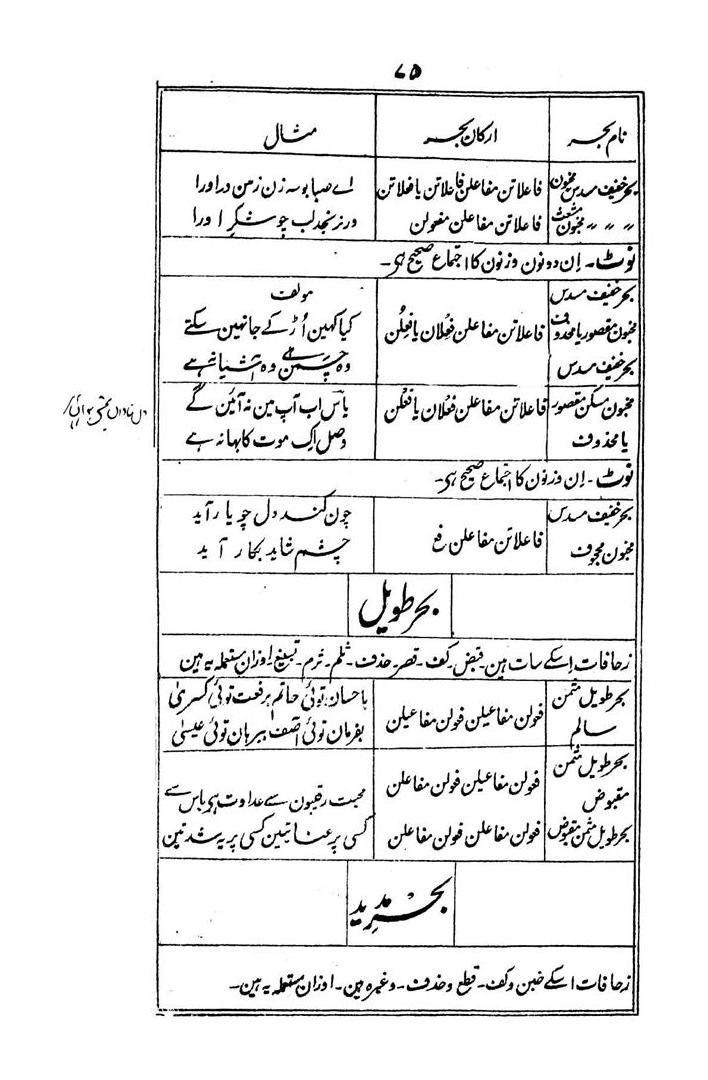 ۷۵
نام بحر ارکان بحر مثال
بحر خفیف مسدس مخبون فاعلاتن مفاعلن فاعلاتن یا فعلاتن اے صبا بوسہ زن زمن در اورا
〃 〃 〃 مخبون مشعث فاعلاتن مفاعلن مفعولن ور نرنجد لب چو شکر اورا
نوٹ۔ اِن دونون وزنون کا اجتماع صحیح ہی۔
بحر خفیف مسدس
مخبون مقصور یا محذوف فاعلاتن مفاعلن فعِلان یا فعِلن مولف
کیا کہین اُڑ کے جا نہین سکتے
بحر خفیف مسدس وہ چمن ہے وہ آشیانہ ہے
مخبون مسکن مقصور فاعلاتن مفاعلن فعْلان یا فعْلن یاس اب آپ مین نہ آئین گے
یا محذوف وصل اِک موت کا بہانہ ہے
نوٹ۔ اِن وزنون کا اجتماع صحیح ہی۔
بحر خفیف مسدس چون کند دل چو یار آید
مخبون مجوف فاعلاتن مفاعلن فع چشم شاید بکار آید
بحر طویل
زحافات اِسکے سات ہین۔ قبض۔ کف۔ قصر۔ حذف۔ ثلم۔ ثرم۔ تسبیغ۔ اوزان مستعملہ یہ ہین
بحر طویل مثمن باحسان توئی حاتم برفعت توئی کسریٰ
سالم فعولن مفاعیلن فعولن مفاعیلن بفرمان توئی آصف ببرہان توئی عیسیٰ
بحر طویل مثمن
مقبوض فعولن مفاعیلن فعولن مفاعلن محبت رقیبون سے عداوت ہی یاس سے
بحر طویل مثمن مقبوض فعولن مفاعلن فعولن مفاعلن کسی پر عنایتین کسی پر یہ شدتین
بحر مدید
زحافات اسکے خبن و کف۔ قطع و حذف۔ وغیرہ ہین۔ اوزان مستعملہ یہ ہین۔